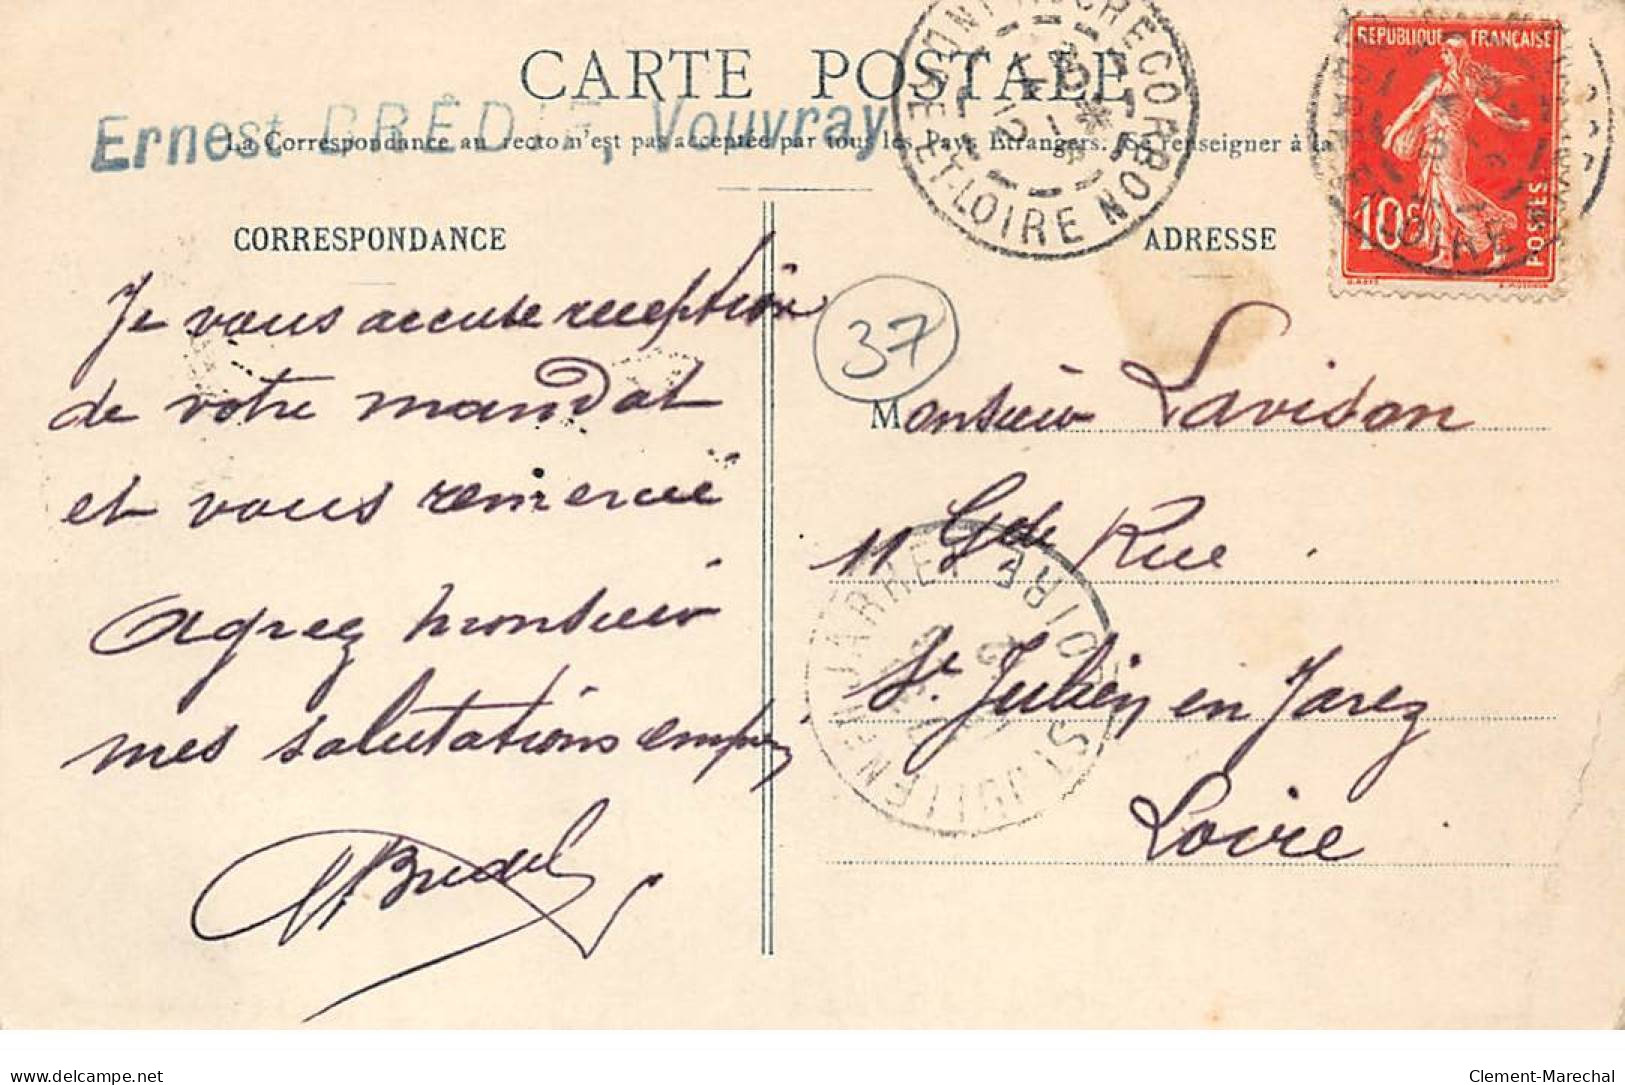 CARTE POSTALE
Ernest BRÉDIF, Vouvray
La Correspondance au recto n'est pas acceptée par tous les Pays Etrangers. (Se renseigner à la
RÉPUBLIQUE FRANÇAISE
10c
POSTES
ROCHECORBON
ET-LOIRE
CORRESPONDANCE
ADRESSE
Je vous accuse reception
de votre mandat
et vous remercie
agreez monsieur
mes salutations
37
Monsieur Lavison
11 Gde Rue
St Julien en Jarez
Loire
ST JULIEN EN JARRET
LOIRE
delcampe.net
Clement-Marechal